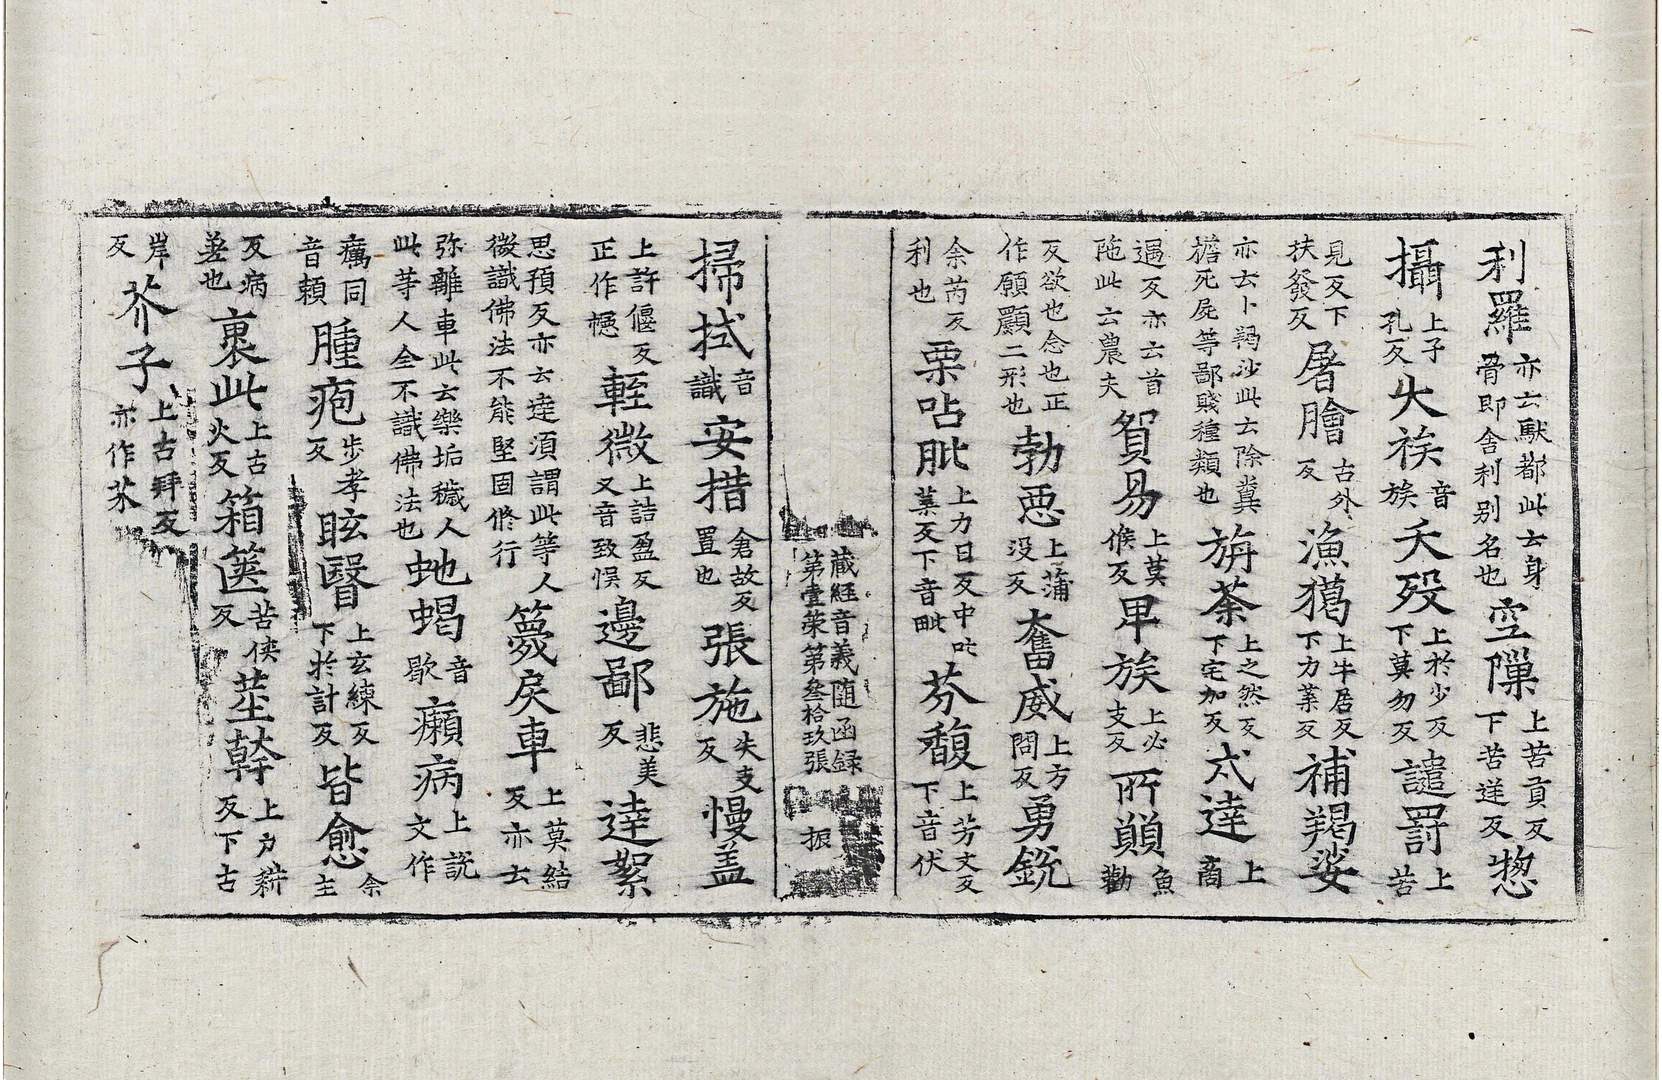 利羅亦云馱都此云身骨即舍利别名也空𨻶上苦貢反下苦逆反惣
攝上子孔反火族音族夭殁上於少反下莫勿反譴罰上苦
見反下扶發反屠膾古外反漁獦上牛居反下力葉反補羯娑
亦云卜羯沙此云除糞擔死屍等鄙賤種類也旃荼上之然反下宅加反弌達上商
遏反亦云首陁此云農夫貿易上莫候反卑族上必支反所顗魚勸
反欲也念也正作願顧二形也勃惡上蒲没反奮威上方問反勇銳
余芮反利也栗呫毗上力日反中吒葉反下音毗芬馥上芳文反下音伏
藏經音義随函録第壹筞第叁拾玖張 振
掃拭音識安措倉故反置也張施失支反慢盖
上許偃反正作幰輊微上詰盈反又音致悮邊鄙悲美反逹絮
思預反亦云逹湏謂此等人微識佛法不能堅固脩行篾戾車上莫結反亦云
弥離車此云樂垢穢人此等人全不識佛法也虵蝎音歇癩病上說文作
癘同音頼腫疱步孝反眩瞖上玄練反下扵計反皆愈余主
反病差也裹此上古火反箱篋苦侠反莖幹上户耕反下古
岸反芥子上古拜反亦作芥